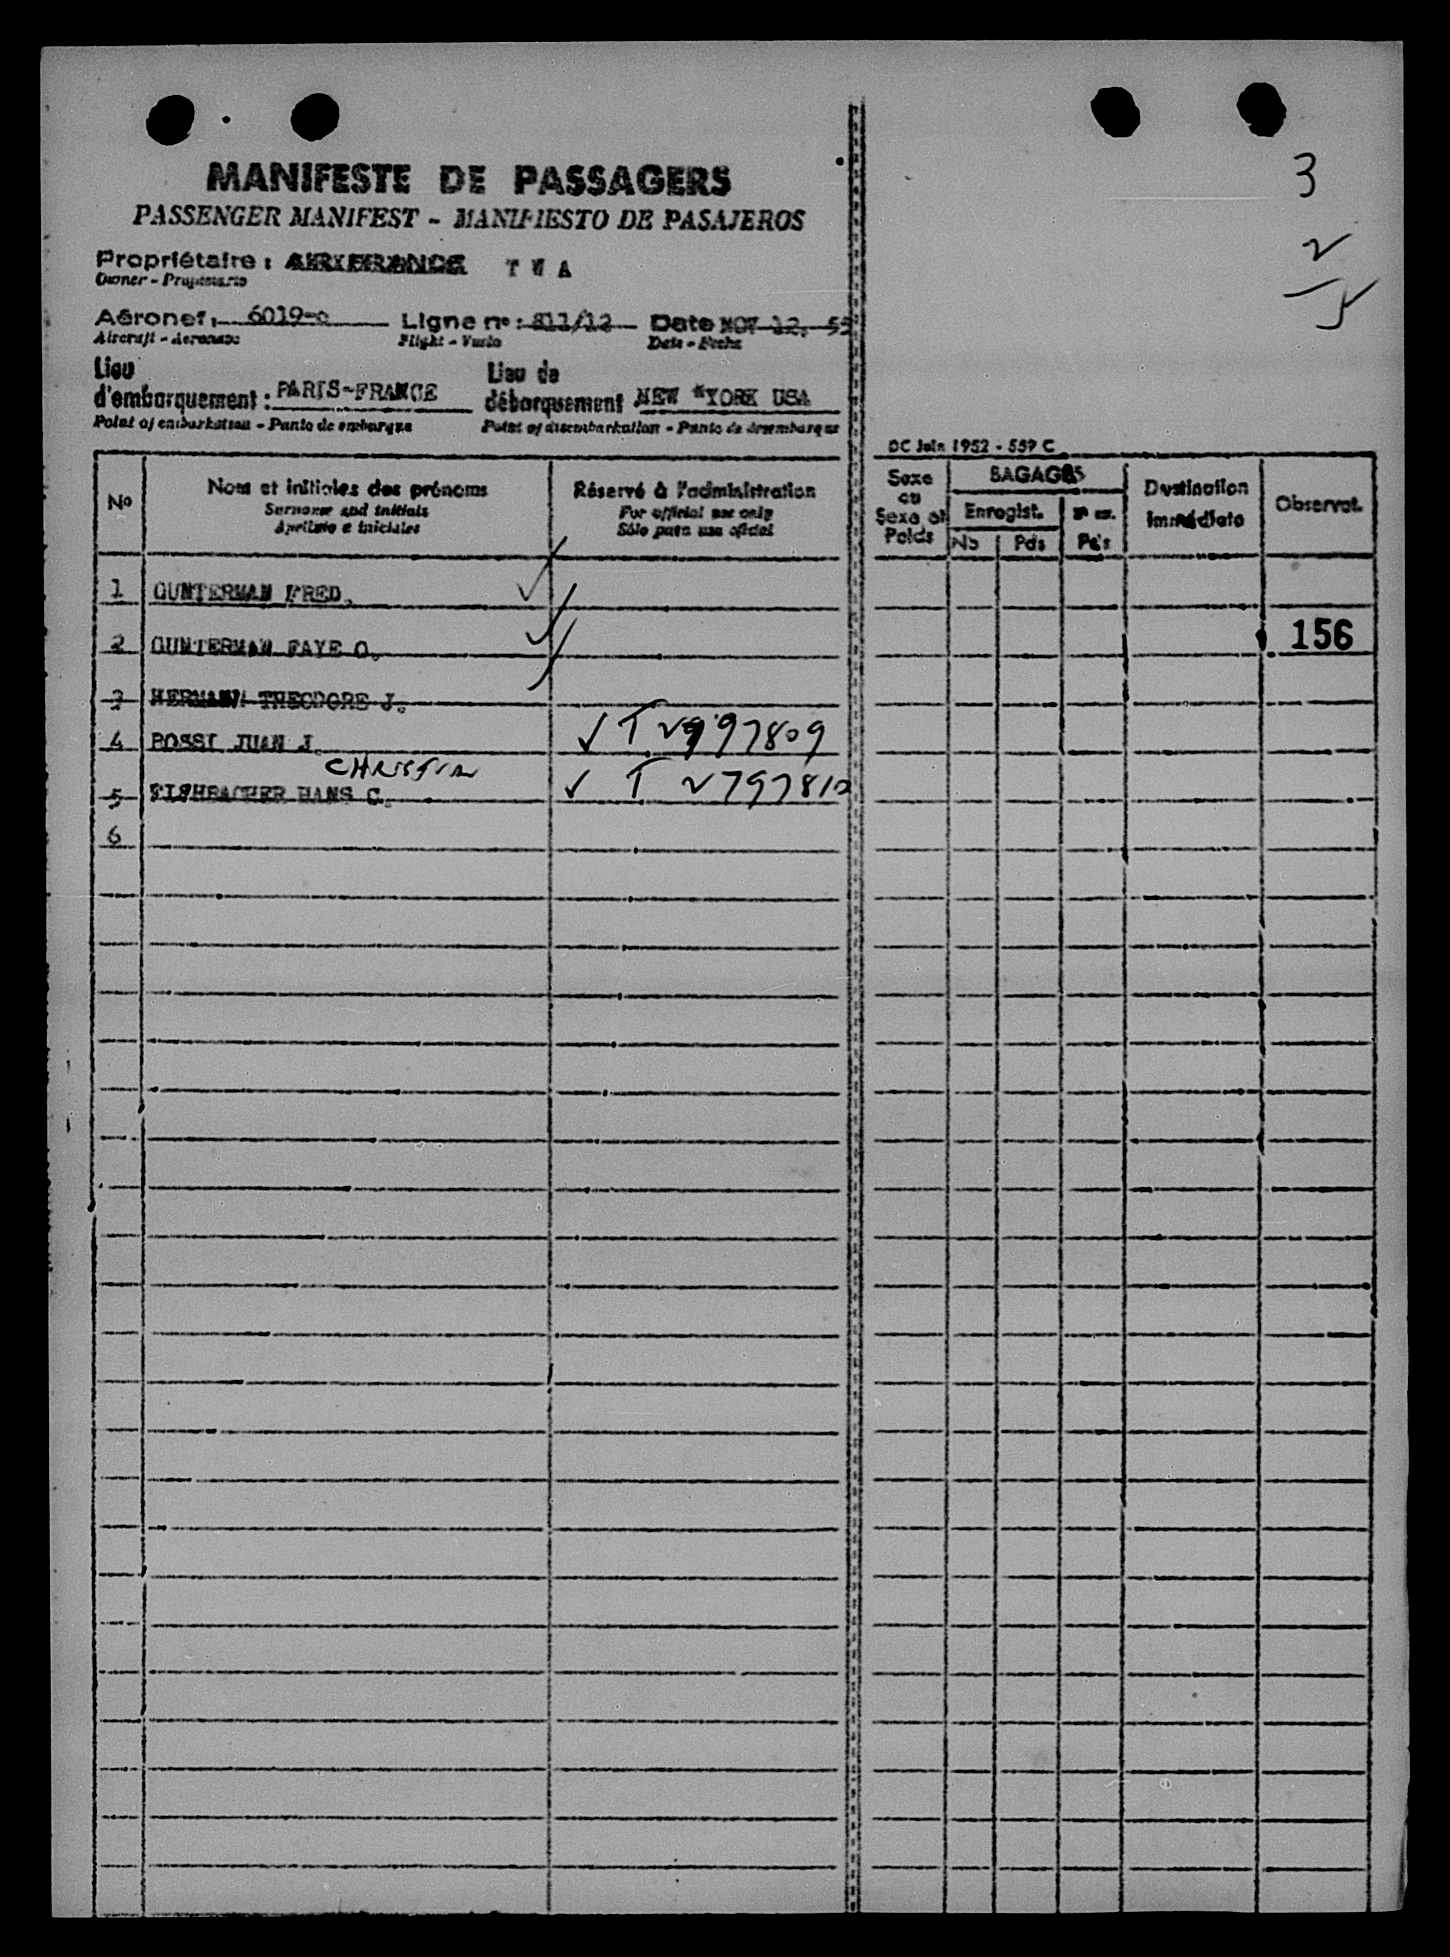 3
2
5
MANIFESTE DE PASSAGERS
PASSENGER MANIFEST - MANIFIESTO DE PASAJEROS
Propriétaire : AIR FRANCE T W A
Owner - Propietario
Aéronef : 6019-c Ligne nº : 811/12 Date NOV 12, 55
Aircraft - Aeronave Flight - Vuelo Date - Fecha
Lieu d'embarquement : PARIS-FRANCE Lieu de débarquement NEW YORK USA
Point of embarkation - Punto de embarque Point of disembarkation - Punto de desembarque
DC Juin 1952 - 559 C
Nº Nom et initiales des prénoms Réservé à l'administration Sexe ou Sexe et Poids BAGAGES Destination immédiate Observat.
Surname and initials For official use only Enregist.
Apellido e iniciales Sólo para uso oficial No Pds Pds
1 GUNTERMAN FRED.
2 GUNTERMAN FAYE O. 156
3 HERMANN THEODORE J.
4 ROSSI JUAN J. ✓ T
CHRISTIAN
5 FISHBACHER HANS C. ✓ T V797810
6